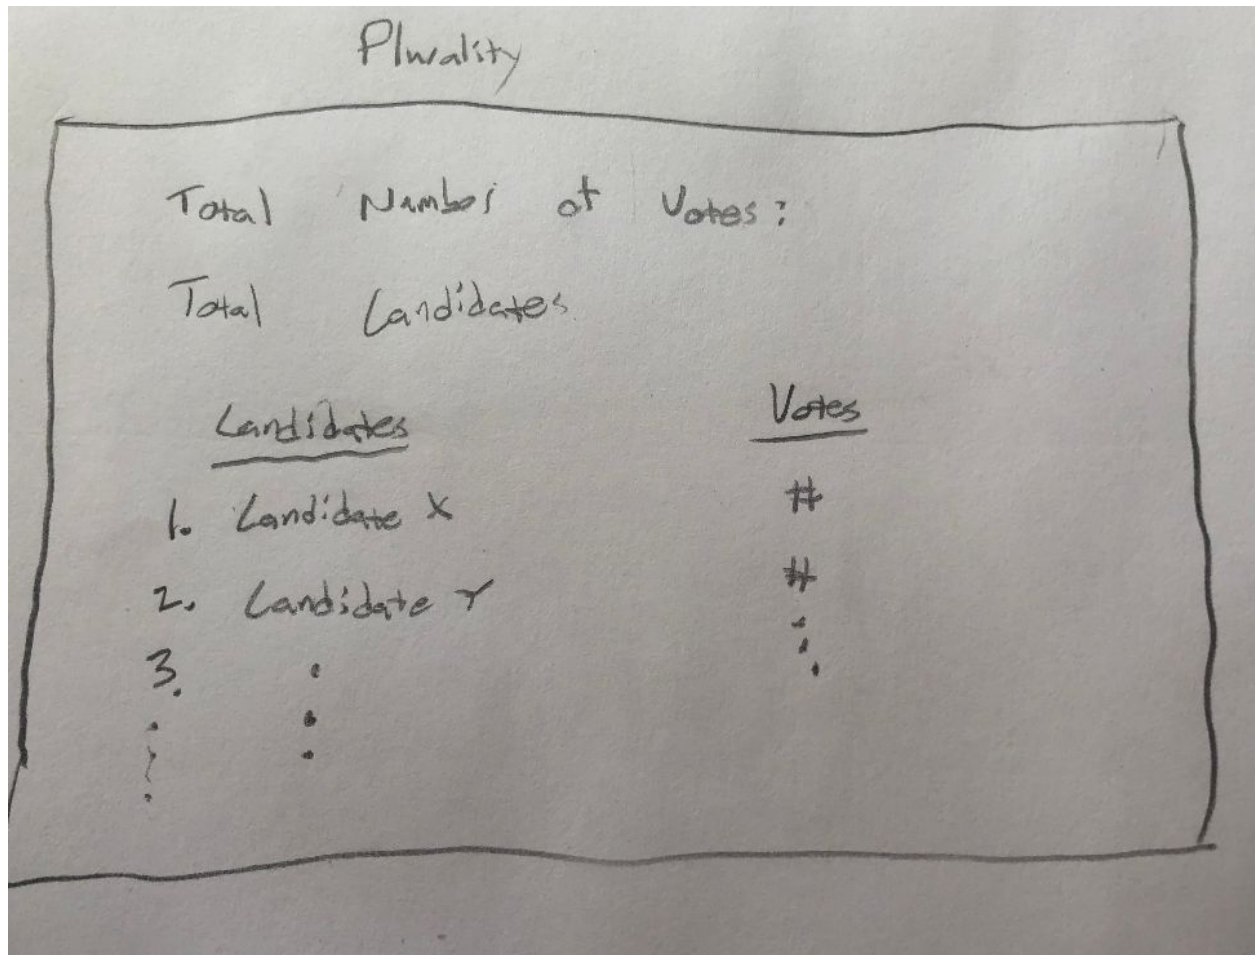 Plurality
Total Number of Votes:
Total Candidates
Candidates Votes
1. Candidate X #
2. Candidate Y #
3.